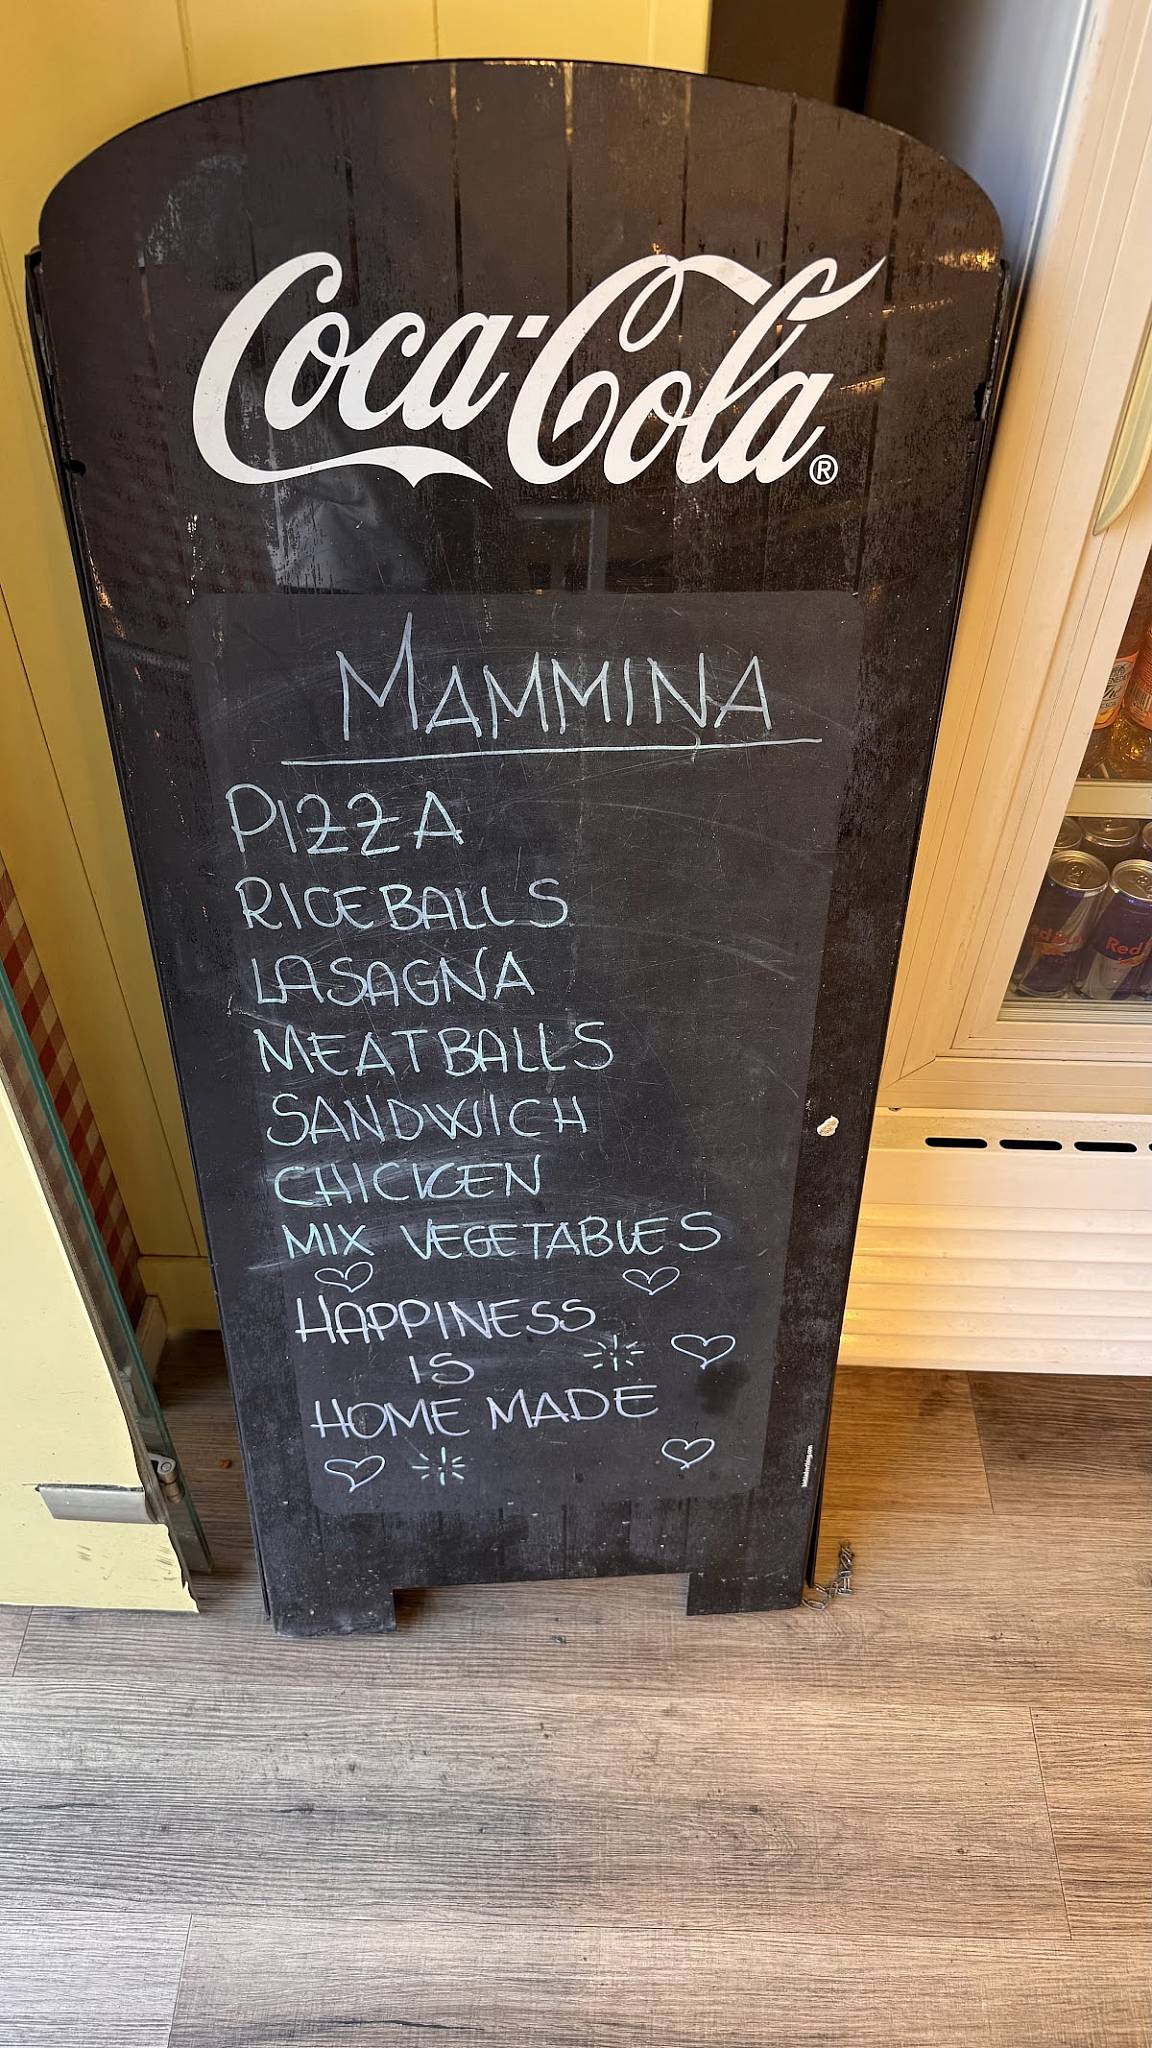 Coca-Cola®
MAMMINA
PIZZA
RICEBALLS
LASAGNA
MEATBALLS
SANDWICH
CHICKEN
MIX VEGETABLES
HAPPINESS
IS
HOME MADE
Red